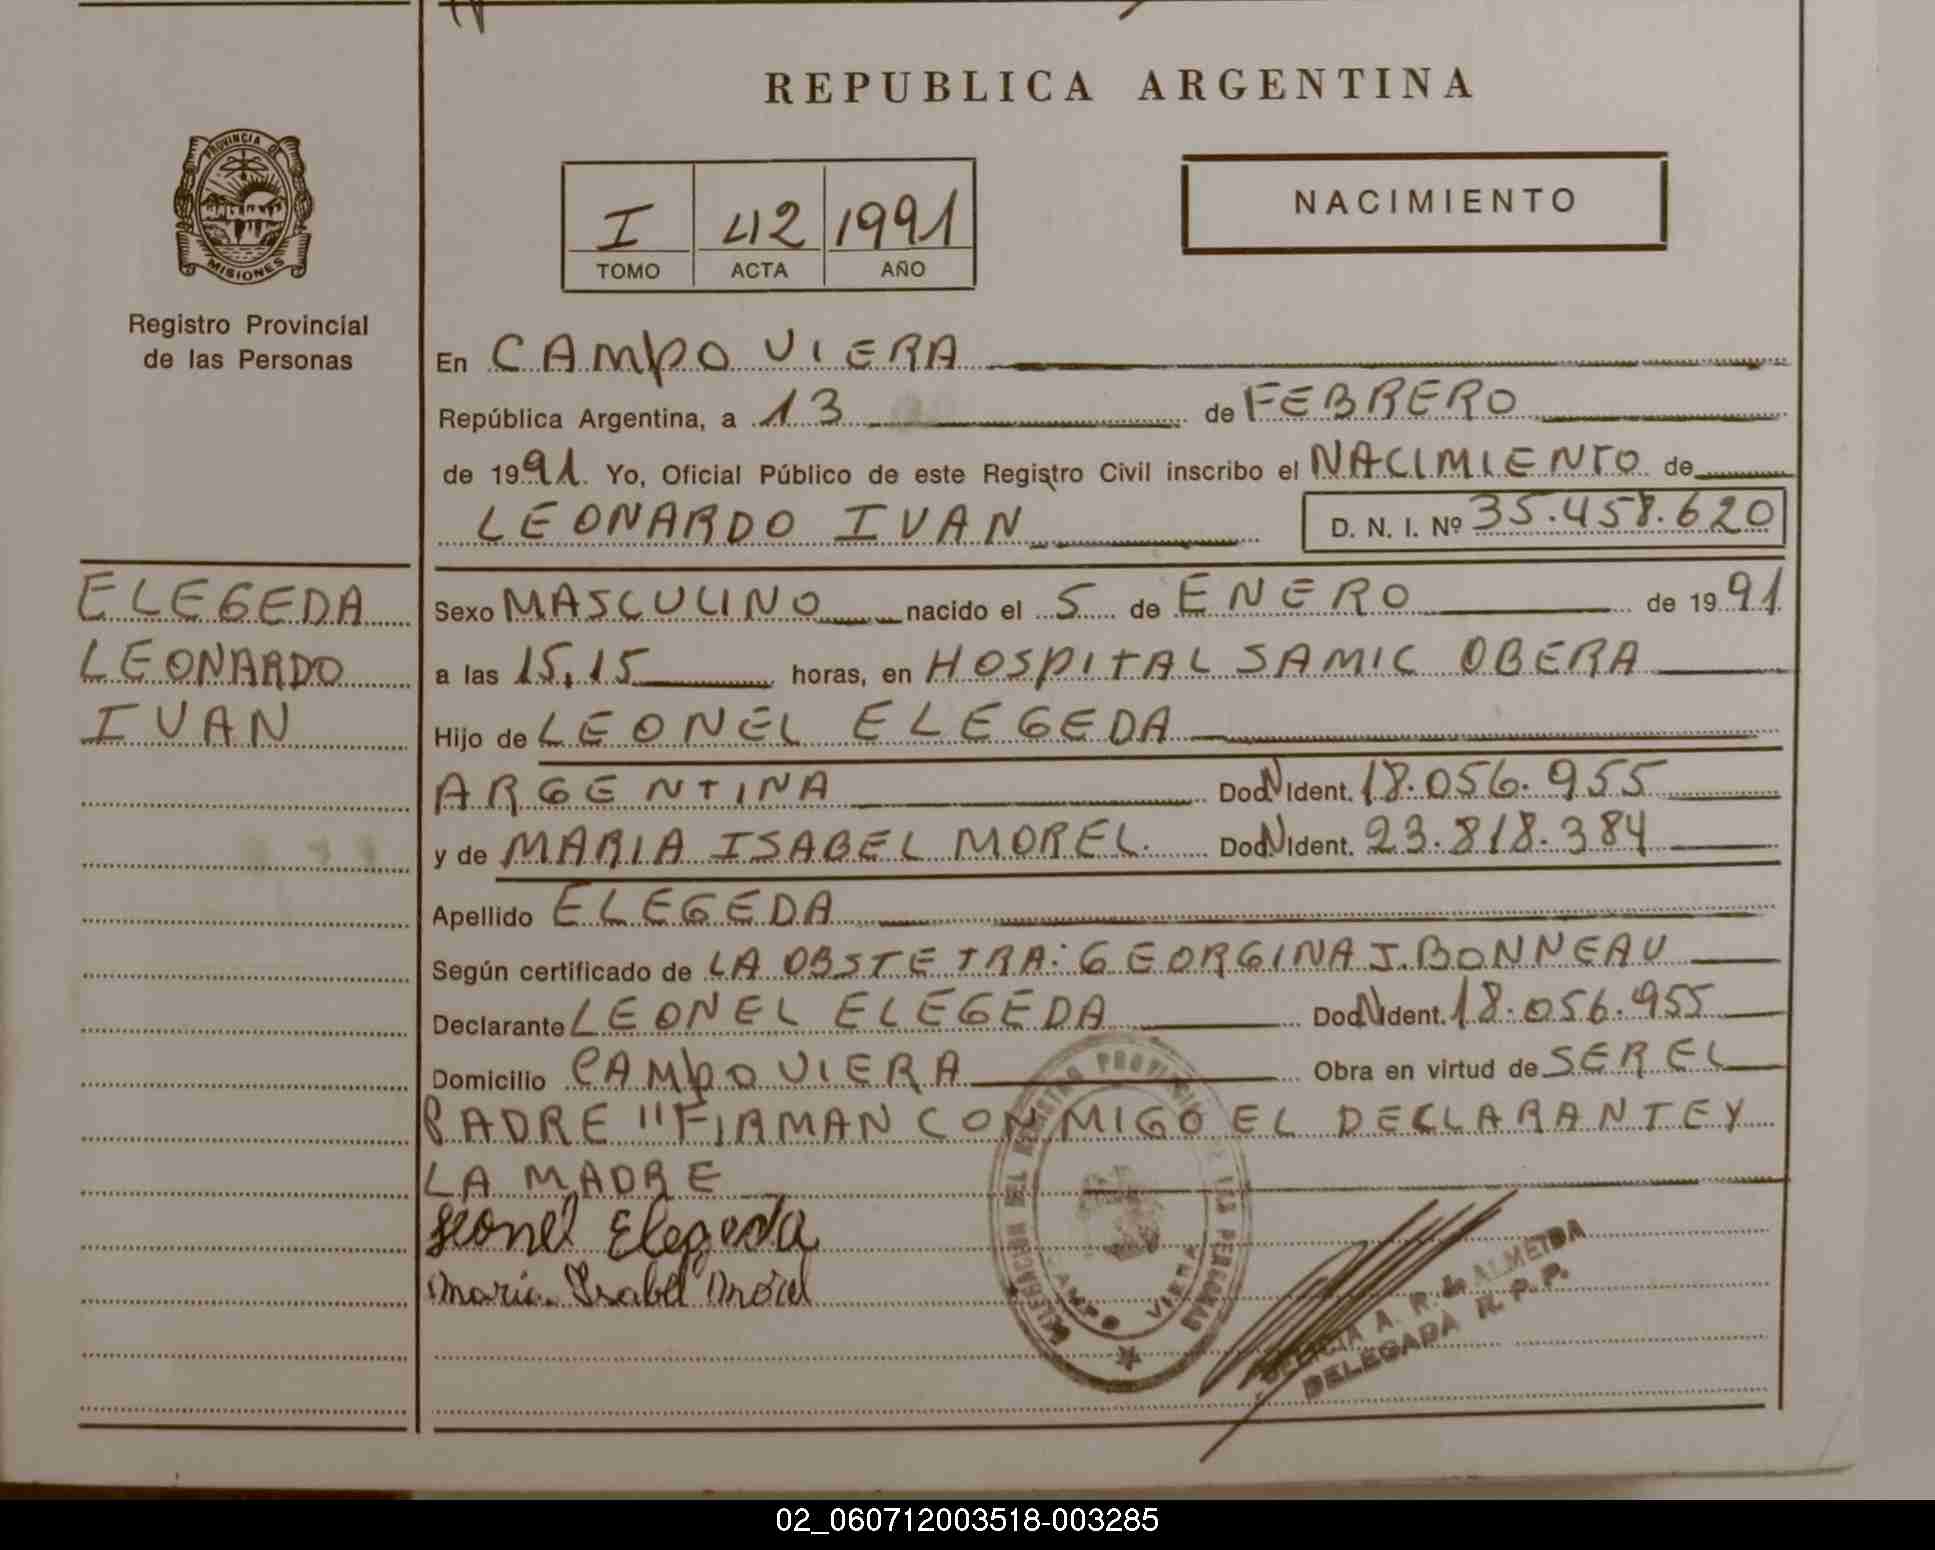 REPUBLICA ARGENTINA
PROVINCIA DE
MISIONES
Registro Provincial
de las Personas
I 42 1991
TOMO ACTA AÑO
NACIMIENTO
En CAMPO VIERA
República Argentina, a 13 de FEBRERO
de 1991. Yo, Oficial Público de este Registro Civil inscribo el NACIMIENTO de
LEONARDO IVAN D. N. I. Nº 35.458.620
ELEGEDA
LEONARDO
IVAN
Sexo MASCULINO nacido el 5 de ENERO de 1991
a las 15,15 horas, en HOSPITAL SAMIC OBERA
Hijo de LEONEL ELEGEDA
ARGENTINA Doc N Ident. 18.056.955
y de MARIA ISABEL MOREL. Doc N Ident. 23.818.384
Apellido ELEGEDA
Según certificado de LA OBSTETRA: GEORGINA J. BONNEAU
Declarante LEONEL ELEGEDA Doc N Ident. 18.056.955
Domicilio CAMPO VIERA Obra en virtud de SER EL
PADRE "FIRMAN CONMIGO EL DECLARANTE Y
LA MADRE
Leonel Elegeda
Maria Isabel Morel
DELEGACION DEL REGISTRO PROVINCIAL DE LAS PERSONAS
CAMPO VIERA
A. R. de ALMEIDA
DELEGADA R. P. P.
02_060712003518-003285